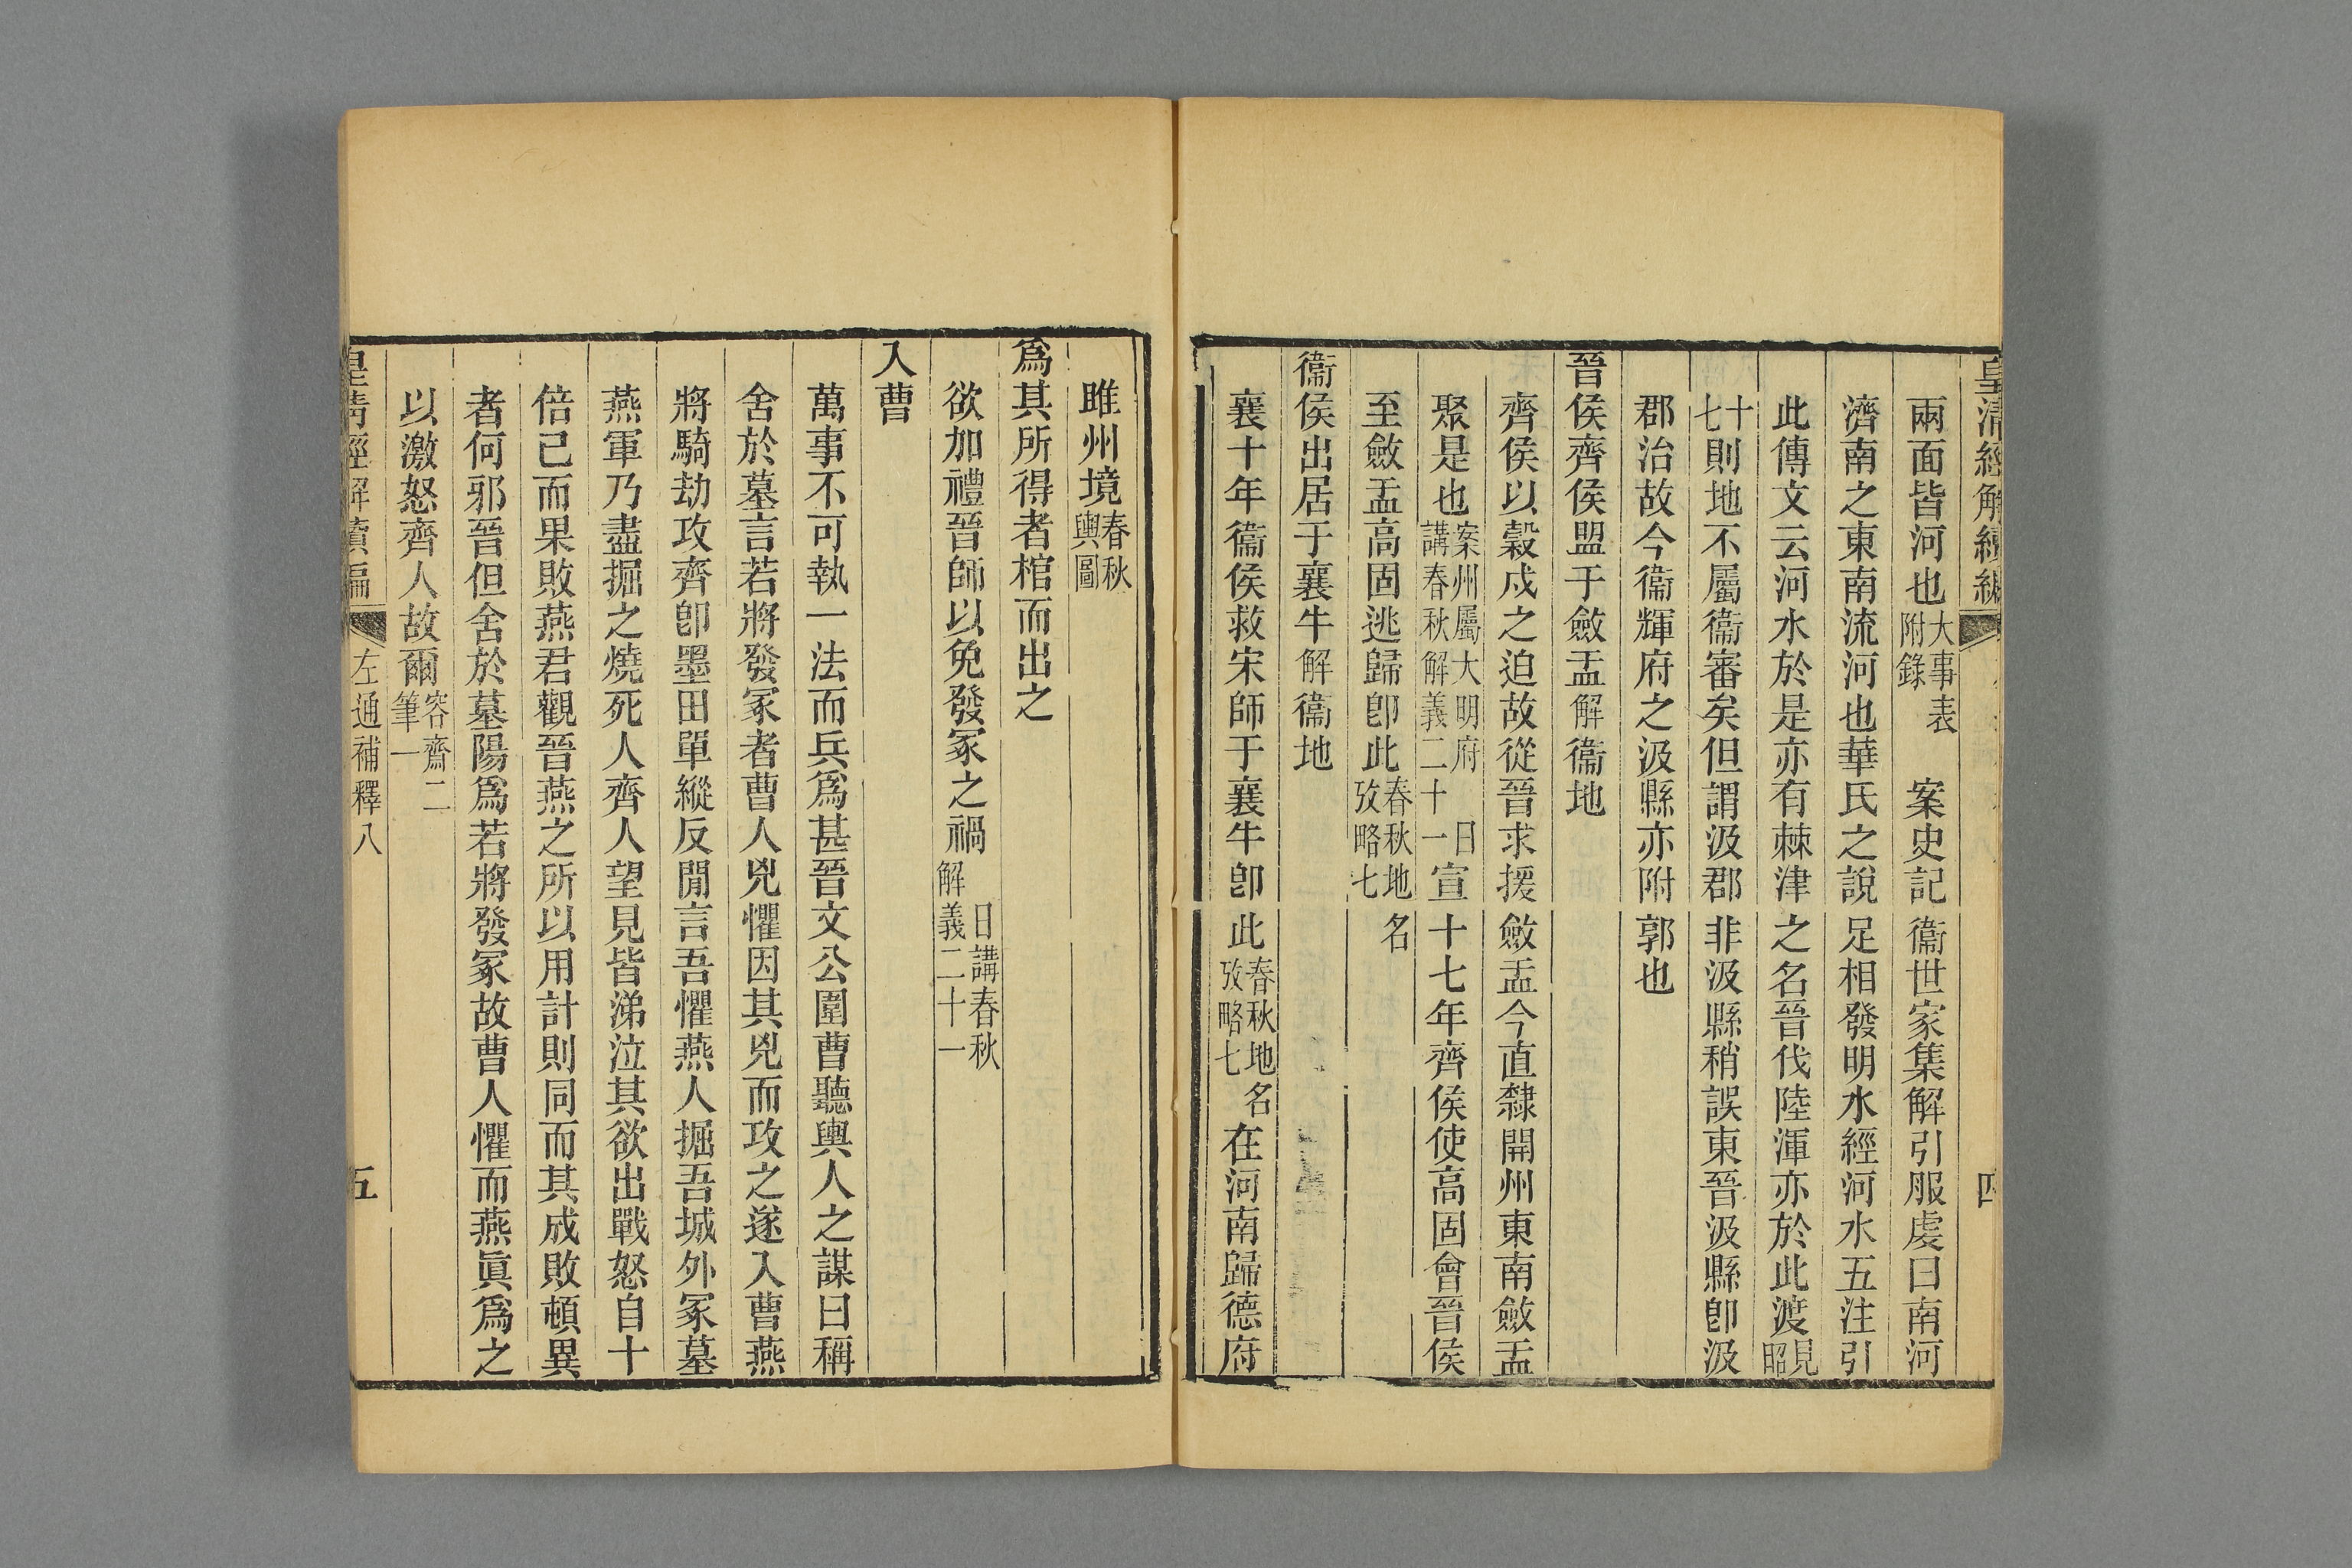 皇清經解續編 四
兩面皆河也大事表附錄 案史記衞世家集解引服虔曰南河
濟南之東南流河也華氏之說足相發明水經河水五注引
此傳文云河水於是亦有棘津之名晉伐陸渾亦於此渡見昭
十七則地不屬衞審矣但謂汲郡非汲縣稍誤東晉汲縣卽汲
郡治故今衞輝府之汲縣亦附郭也
晉侯齊侯盟于斂盂解衞地
齊侯以穀戍之迫故從晉求援斂盂今直隸開州東南斂盂
聚是也案州屬大明府 日講春秋解義二十一宣十七年齊侯使高固會晉侯
至斂盂高固逃歸卽此春秋地名攷略七
衞侯出居于襄牛解衞地
襄十年衞侯救宋師于襄牛卽此春秋地名攷略七在河南歸德府
睢州境春秋輿圖
爲其所得者棺而出之
欲加禮晉師以免發冢之禍日講春秋解義二十一
入曹
萬事不可執一法而兵爲甚晉文公圍曹聽輿人之謀曰稱
舍於墓言若將發冢者曹人兇懼因其兇而攻之遂入曹燕
將騎劫攻齊卽墨田單縱反閒言吾懼燕人掘吾城外冢墓
燕軍乃盡掘之燒死人齊人望見皆涕泣其欲出戰怒自十
倍已而果敗燕君觀晉燕之所以用計則同而其成敗頓異
者何邪晉但舍於墓陽爲若將發冢故曹人懼而燕眞爲之
以激怒齊人故爾容齋二筆一
皇清經解續編 左通補釋八 五